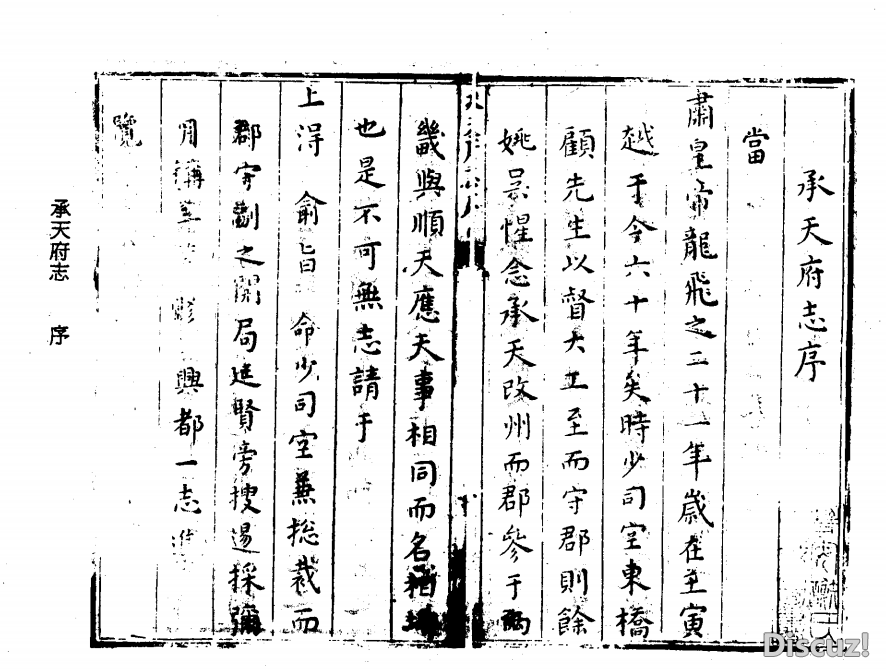 承天府志序
當
肅皇帝龍飛之二十一年歲在壬寅
越于今六十年矣時少司空東橋
顧先生以督大工至而守郡則餘
姚吳惺念承天改州而郡參于兩
畿與順天應天事相同而名相
也是不可無志請于
上得俞旨命少司空兼總裁而
郡守劻之開局延賢旁搜遏採彌
月 興都一志進
覽
承天府志 序
Discuz!